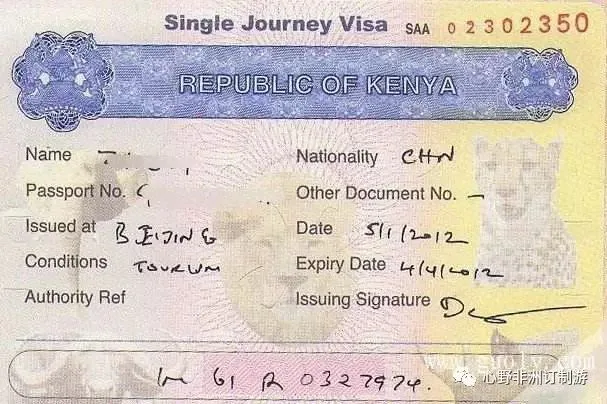 Single Journey Visa SAA 02302350
REPUBLIC OF KENYA
Name
Nationality CHN
Passport No.
Other Document No. -
Issued at BEIJING
Date 5/1/2012
Conditions TOURISM
Expiry Date 4/4/2012
Authority Ref
Issuing Signature
61 R 0327974.
心野非洲订制游